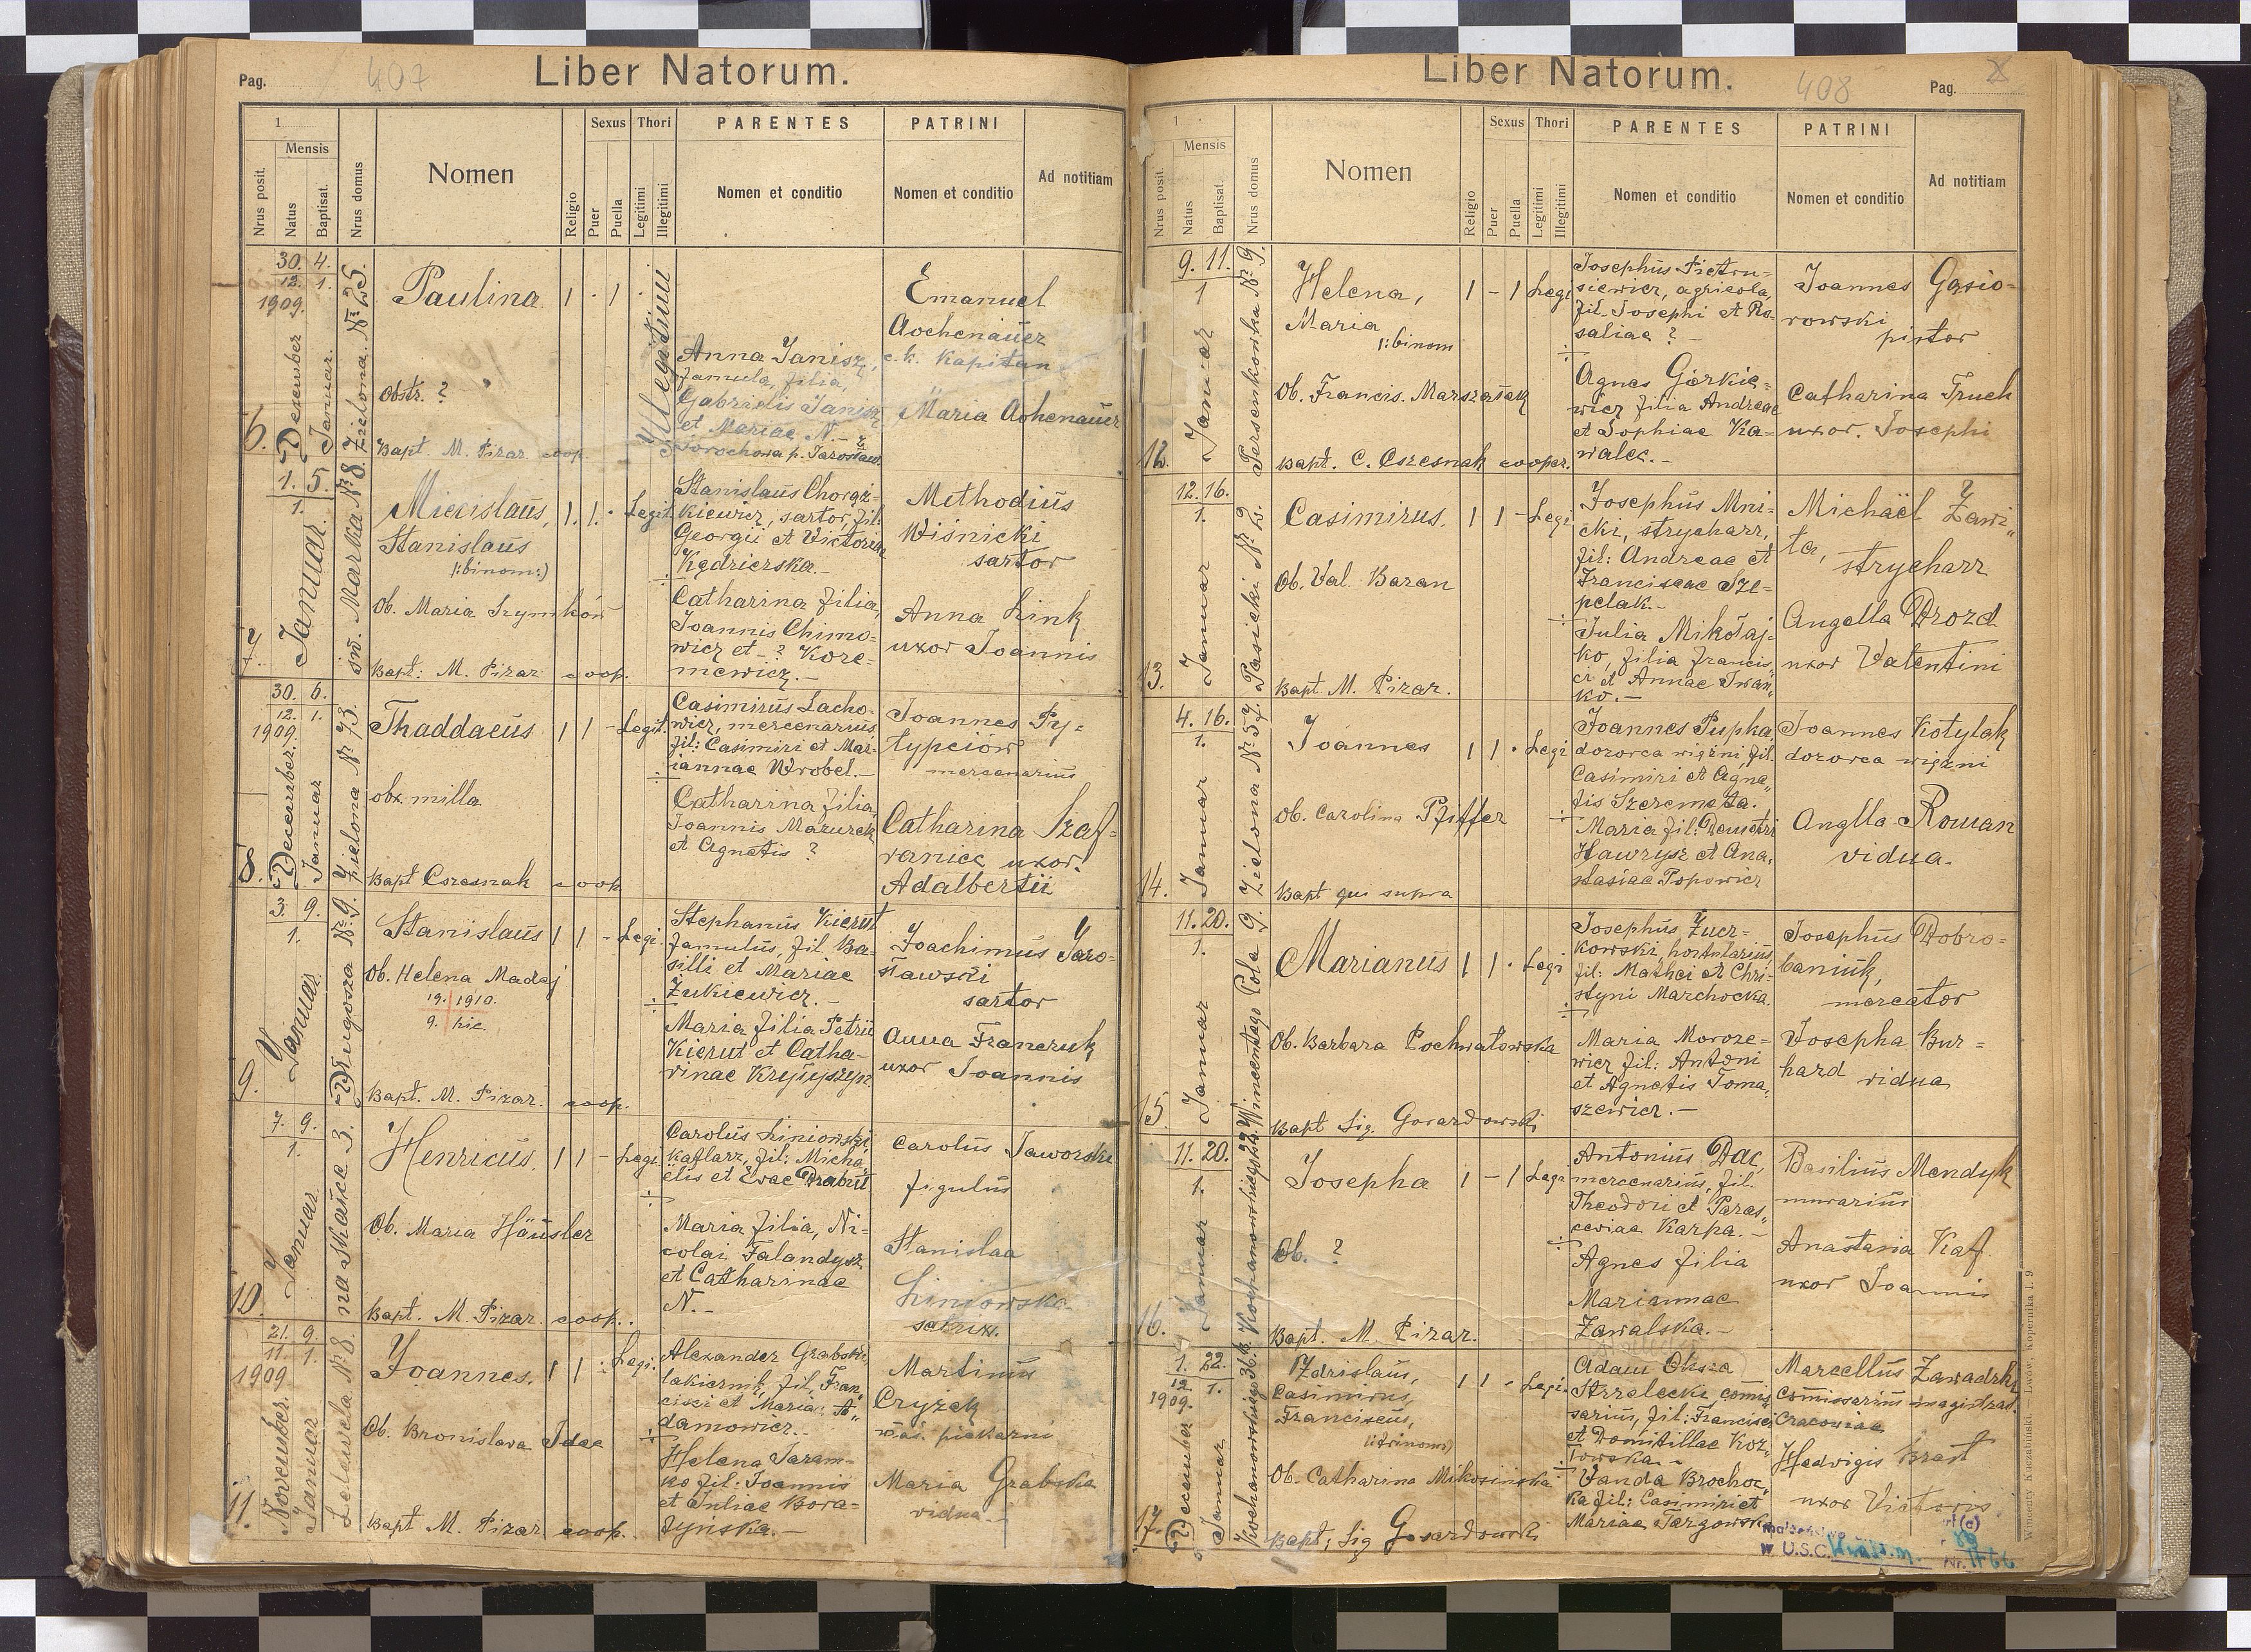 Pag.
407
Liber Natorum.
1
Mensis
Nrus posit.
Natus
Baptisat.
Nrus domus
Nomen
Religio
Sexus
Puer
Puella
Thori
Legitimi
Illegitimi
PARENTES
Nomen et conditio
PATRINI
Nomen et conditio
Ad notitiam
6.
30. 4.
12. 1.
1909.
December
Januar.
Zielona. Nº 25.
Paulina
1 . 1
Obstr. ?
Bapt. M. Pizar coop.
Illegitimi
Anna Janisz,
famula, filia,
Gabrielis Janisz
et Mariae N. – z
p. Jarosław.
Emanuel
Aochenaüer
c. k. Kapitan
Maria Aohenaüer
7.
1. 5.
1.
Januar.
św. Marka Nº 8.
Miecislaüs,
Stanislaüs
/:binom:)
1. 1. .
Legit.
Ob. Maria Szymkón
Bapt: M. Pizar coop.
Stanislaüs Chorąz=
kiewicz, sartor, fil:
Georgii et Victoriae
Kędzierska.–
Catharina filia,
Joannis Chimo=
wicz et – ? Kore=
mewicz.–
Methodiüs
Wiśnicki
sartor
Anna Link
uxor Joannis
8.
30. 6.
12. 1.
1909.
December.
Januar
Zielona Nº 73.
Thaddaeüs
1 1 –
Legit.
obx. milla
Bapt Czesnak coop.
Casimirüs Lacho=
wicz, mercenariüs,
fil: Casimiri et Mar=
iannae Wrobel.–
Catharina filia,
Joannis Mazurek
et Agnetis ?
Joannes Py=
typciów
mercenariüs
Catharina Szaf=
raniec uxor
Adalbertii
9.
3. 9.
1.
Januar.
Długosza Nº 9.
Stanislaüs
1 1 –
Legi.
Ob. Helena Madaj
19. 1910.
9. hic.
Bapt. M. Pizar. coop.
Stephanüs Kierüt
famulüs, fil. Ba=
silii et Mariae
Żukiewicz.–
Maria filia Petrii
Kierut et Catha=
rinae
Joachimüs Jaro=
sławski
sartor
Anna Franczuk
uxor Joannis
10.
7. 9.
1.
Januar.
na Skałce 3.
Henricüs.
1 1 –
Legi
Ob. Maria Häusler
Bapt. M. Pizar. coop.
Carolüs Liniowski
kaflarz, fil: Micha=
elis et Evae Drabüt
Maria filia, Ni=
colai Falandysz
et Catharinae
N.–
Carolüs Jaworski
figulüs
Stanislaa
Liniowska
11.
21. 9.
11. 1.
1909.
November.
Januar
Lelewela Nº 8.
Joannes.
1 1 .
Legi.
Ob. Bronislava Idec
Bapt M. Pizar coop.
Alexander Grabski,
lakiernik, fil. Fran=
cisci et Mariae A=
damowicz.–
Helena Jaram=
ko fil: Joannis
et Juliae Bora=
tyńska.–
Martinüs
Cryżek
wł. piekarni
Maria Grabska
vidua.–
Liber Natorum.
408
Pag.
1
Mensis
Nrus posit.
Natus
Baptisat.
Nrus domus
Nomen
Religio
Sexus
Puer
Puella
Thori
Legitimi
Illegitimi
PARENTES
Nomen et conditio
PATRINI
Nomen et conditio
Ad notitiam
12.
9. 11.
1
Januar
Persenkowka Nº 9.
Helena,
Maria
/:binom
1 – 1
Legi
Ob. Francis. Marszałek
Bapt. C. Czesnak cooper.
Josephüs Pietru=
siewicz, agricola,
fil. Josephi et Ro=
saliae ? –
Agnes Górkie=
wicz filia Andreae
et Sophiae Ka=
walec.–
Joannes Gąsio=
rowski
pistor
Catharina Truch
uxor. Josephi
13.
12. 16.
1.
Januar
Pasieki Nº 2.
Casimirüs.
1 1 –
Legi
Ob. Val. Baran
Bapt M. Pizar.
Josephüs Mni=
cki, strycharz,
fil: Andreae et
Franciscae Sze=
pelak.–
Julia Mikołaj=
ko, filia Francis=
ci et Annae Iwan=
ko.–
Michaël Zawi=
ła,
strycharz
Angella Drozd
uxor Valentini
14.
4. 16.
1.
Januar
Zielona Nº 57.
Joannes
1 1 .
Legi
Ob. Carolina Pfiffer
Bapt qui supra
Joannes Pupka
dozorca więźni, fil.
Casimiri et Agne=
tis Szeremeta.
Maria fil: Demetri
Hawrysz et Ana=
stasiae Popowicz
Joannes Kotylak
dozorca więźni
Anglla Roman
vidua.
15.
11. 20.
1.
Januar
Wincentego Pola 9.
Marianüs
1 1 .
Legi
Ob. Barbara Pochwatowska
Bapt Sig. Gorardowski
Josephüs Zucz=
kowski, hortularius
fil: Mathei et Chri=
styni Marchocka.
Maria Moroze=
wicz fil: Antoni
et Agnetis Toma=
szewicz.–
Josephüs Dobro=
baniuk,
mercator
Josepha Bur=
hard vidua
16.
11. 20.
1.
Januar
Kochanowskiego 22.
Josepha
1 – 1
Legi
Ob. ?
Bapt. M. Pizar.
Antoniüs Dac,
mercenariüs, fil.
Theodori et Paras=
ceviae Karpa.–
Agnes filia
Mariannae
Zawalska.–
Basiliüs Mendyk
murariüs
Anastasia Kaf
uxor Joannis
17.
1. 22.
12 1.
1909.
December
Januar
Kochanowskiego 36.
Zdzislaüs,
Casimirus,
Franciscüs,
/:trinom)
1 1 –
Legi.
Ob. Catharina Mikosińska
Bapt; Sig Gorardowski
Adam Oksza
Strzelecki comis=
sariüs, fil: Francisci
et Domitillae Koz=
łowska.–
Vanda Brochoc=
ka fil: Casimiri et
Mariae Targowska
Marcellüs Zawadzki
Comissariüs magistrat.
Cracoviae
Hedvigis Brast
uxor Victoris
w U.S.C.
Nr.
Wincenty Kuczabiński Lwów, Kopernika l. 9